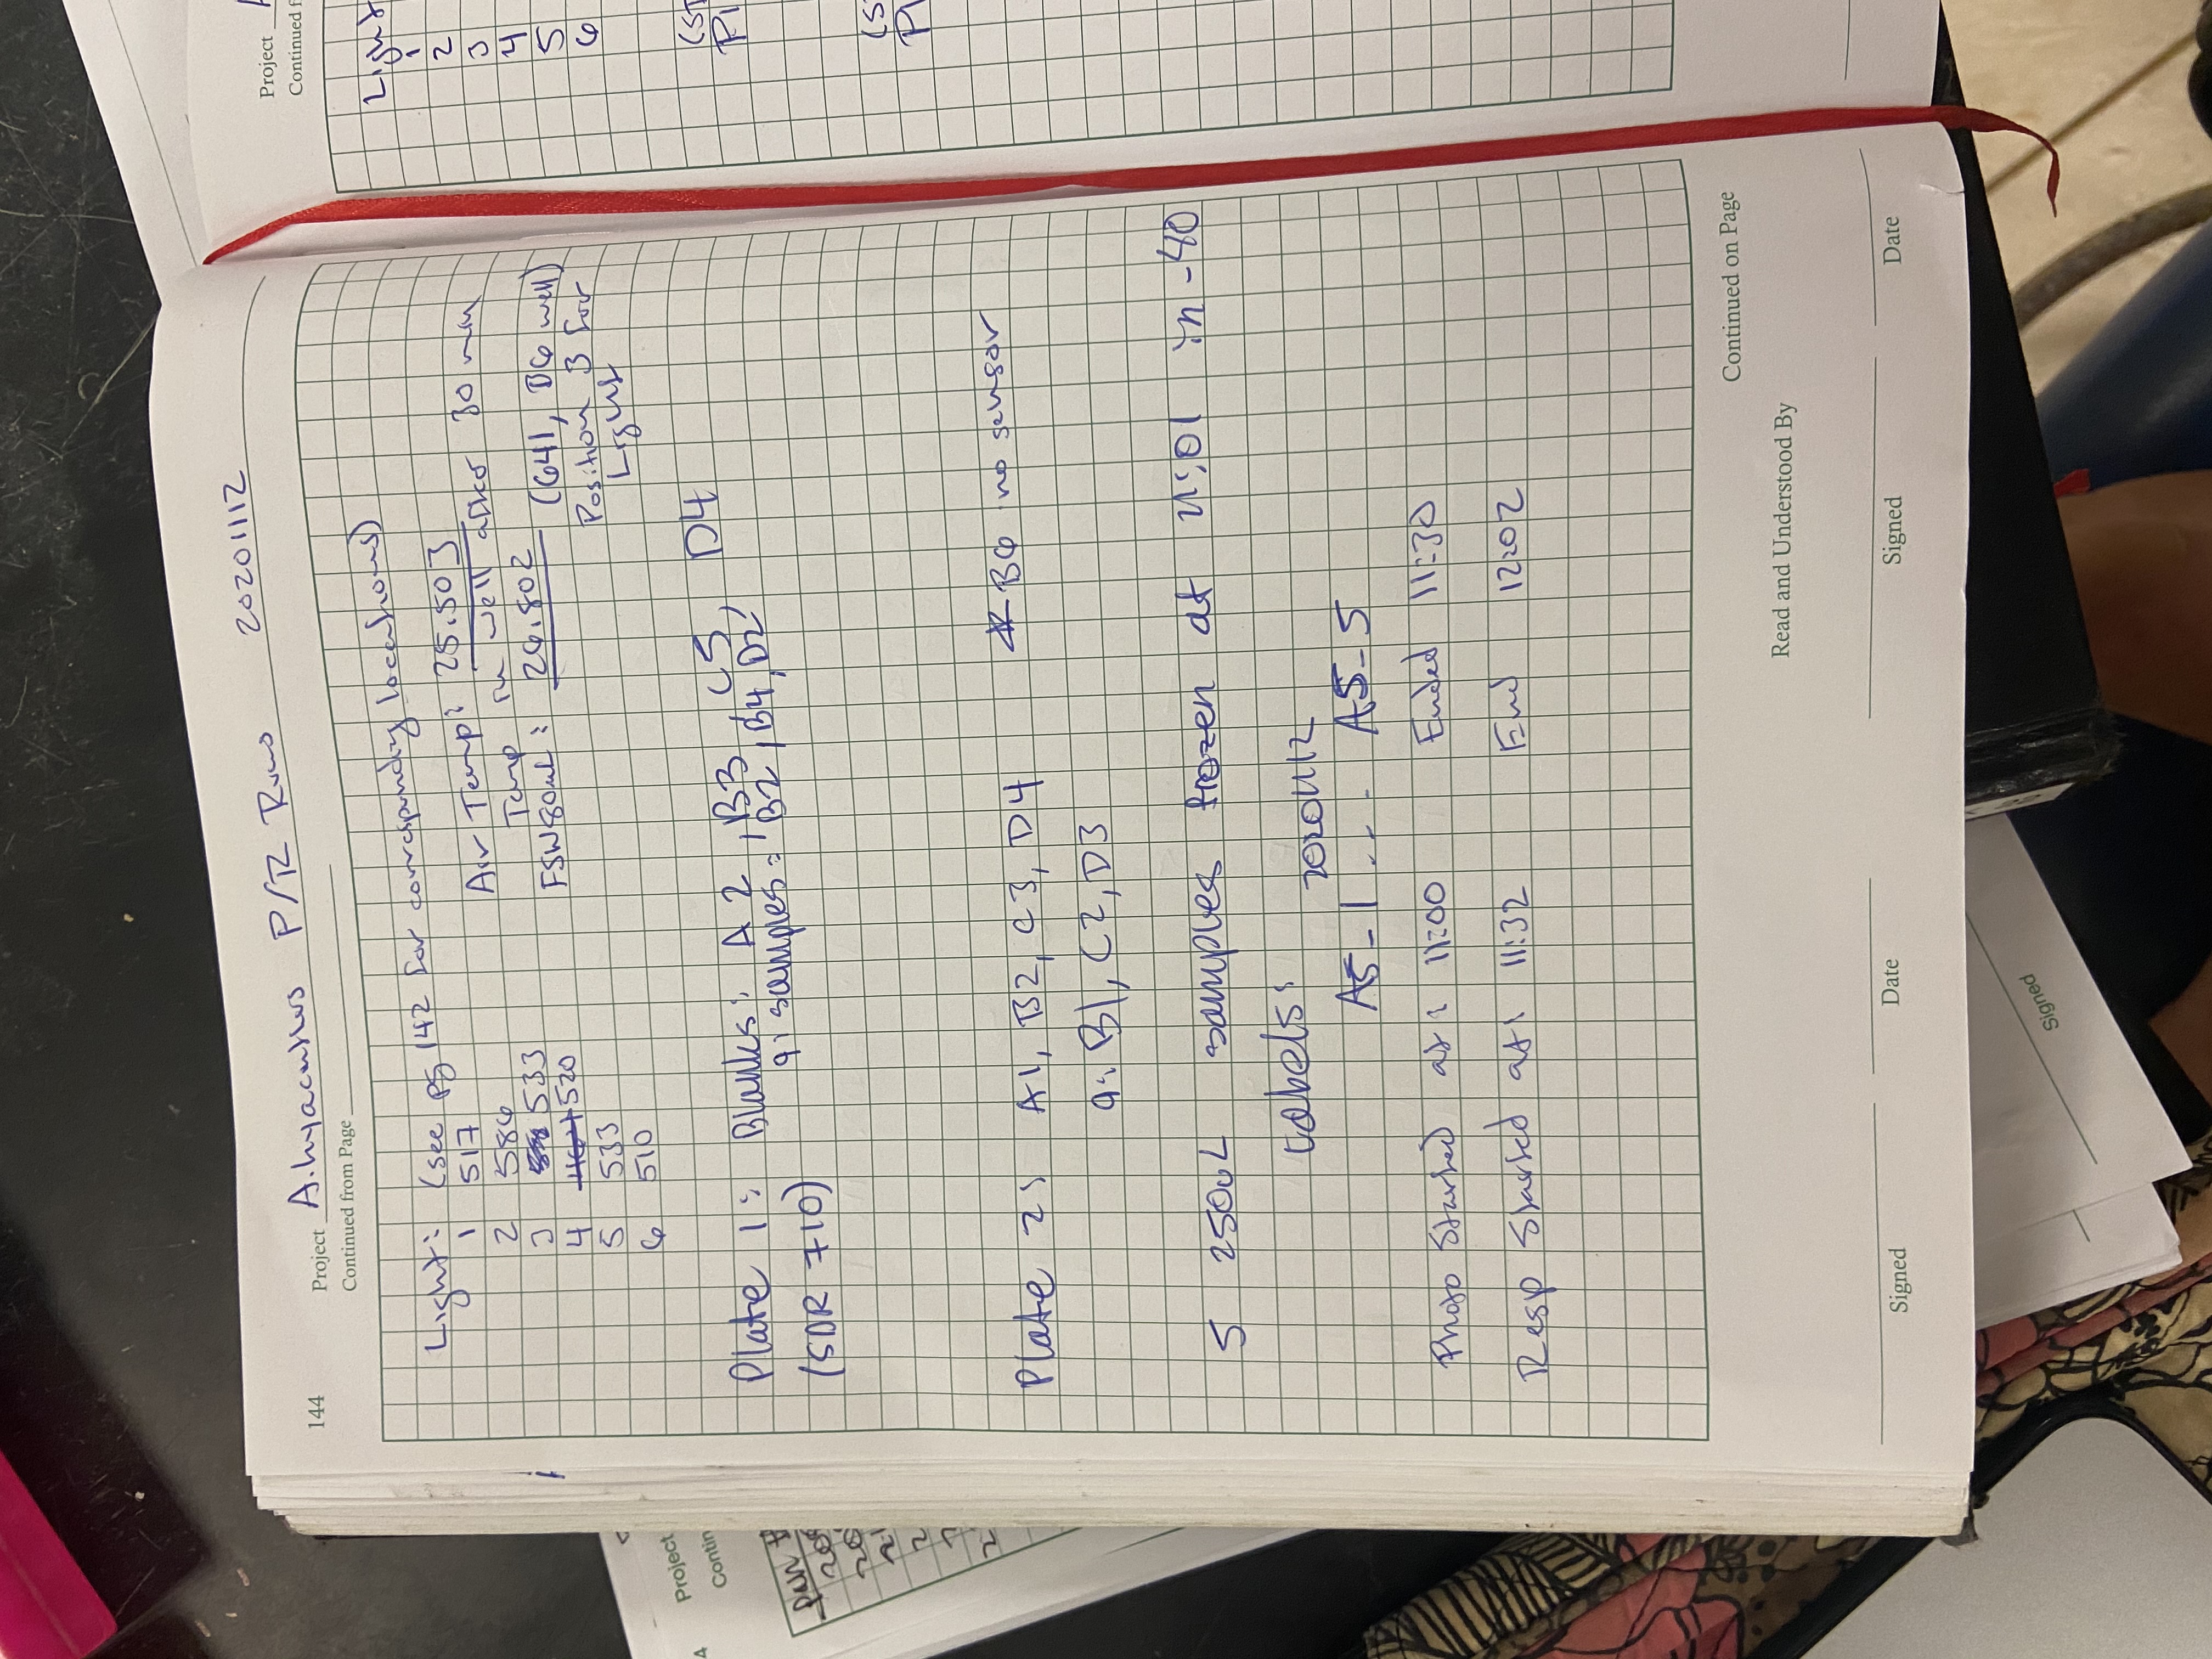 144
Project A.hyacinthus P/R Runs 20201112
Continued from Page
Light: (see pg 142 for correspondig locations)
1 517
2 586
3 533
4 520
5 533
6 510
Air Temp: 25.503
Temp in well after 30 min
FSW 80uL: 26.802 (641, D6 well)
Position 3 for
Light
Plate 1: Blanks: A2, B3, C5, D4
9: samples = B2, B4, D2
(SDR 710)
Plate 2: A1, B2, C3, D4 * B6 no sensor
9: B1, C2, D3
5 250uL samples frozen at 11:01 in -40
Labels:
20201112
A5-1 ... A5-5
Photo Started at: 11:00 Ended 11:30
Resp Started at: 11:32 End 12:02
Continued on Page
Read and Understood By
Signed Date Signed Date
Project
Continued f
Light
1
2
3
4
5
6
4 Project
Contin
Signed